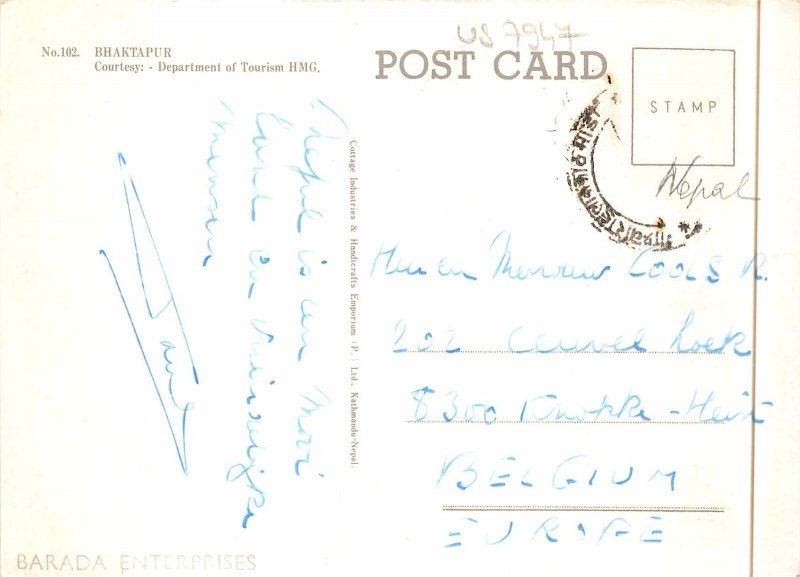 US 7947
No.102. BHAKTAPUR
Courtesy: - Department of Tourism HMG.
POST CARD
STAMP
Nepal
Nepal is een mooi
land en vriendelijke
mensen
Cottage Industries & Handicrafts Emporium (P.) Ltd., Kathmandu-Nepal.
Heer en Mevrouw COOLS R.
202
8300 Knokke-Heist
BELGIUM
EUROPE
BARADA ENTERPRISES